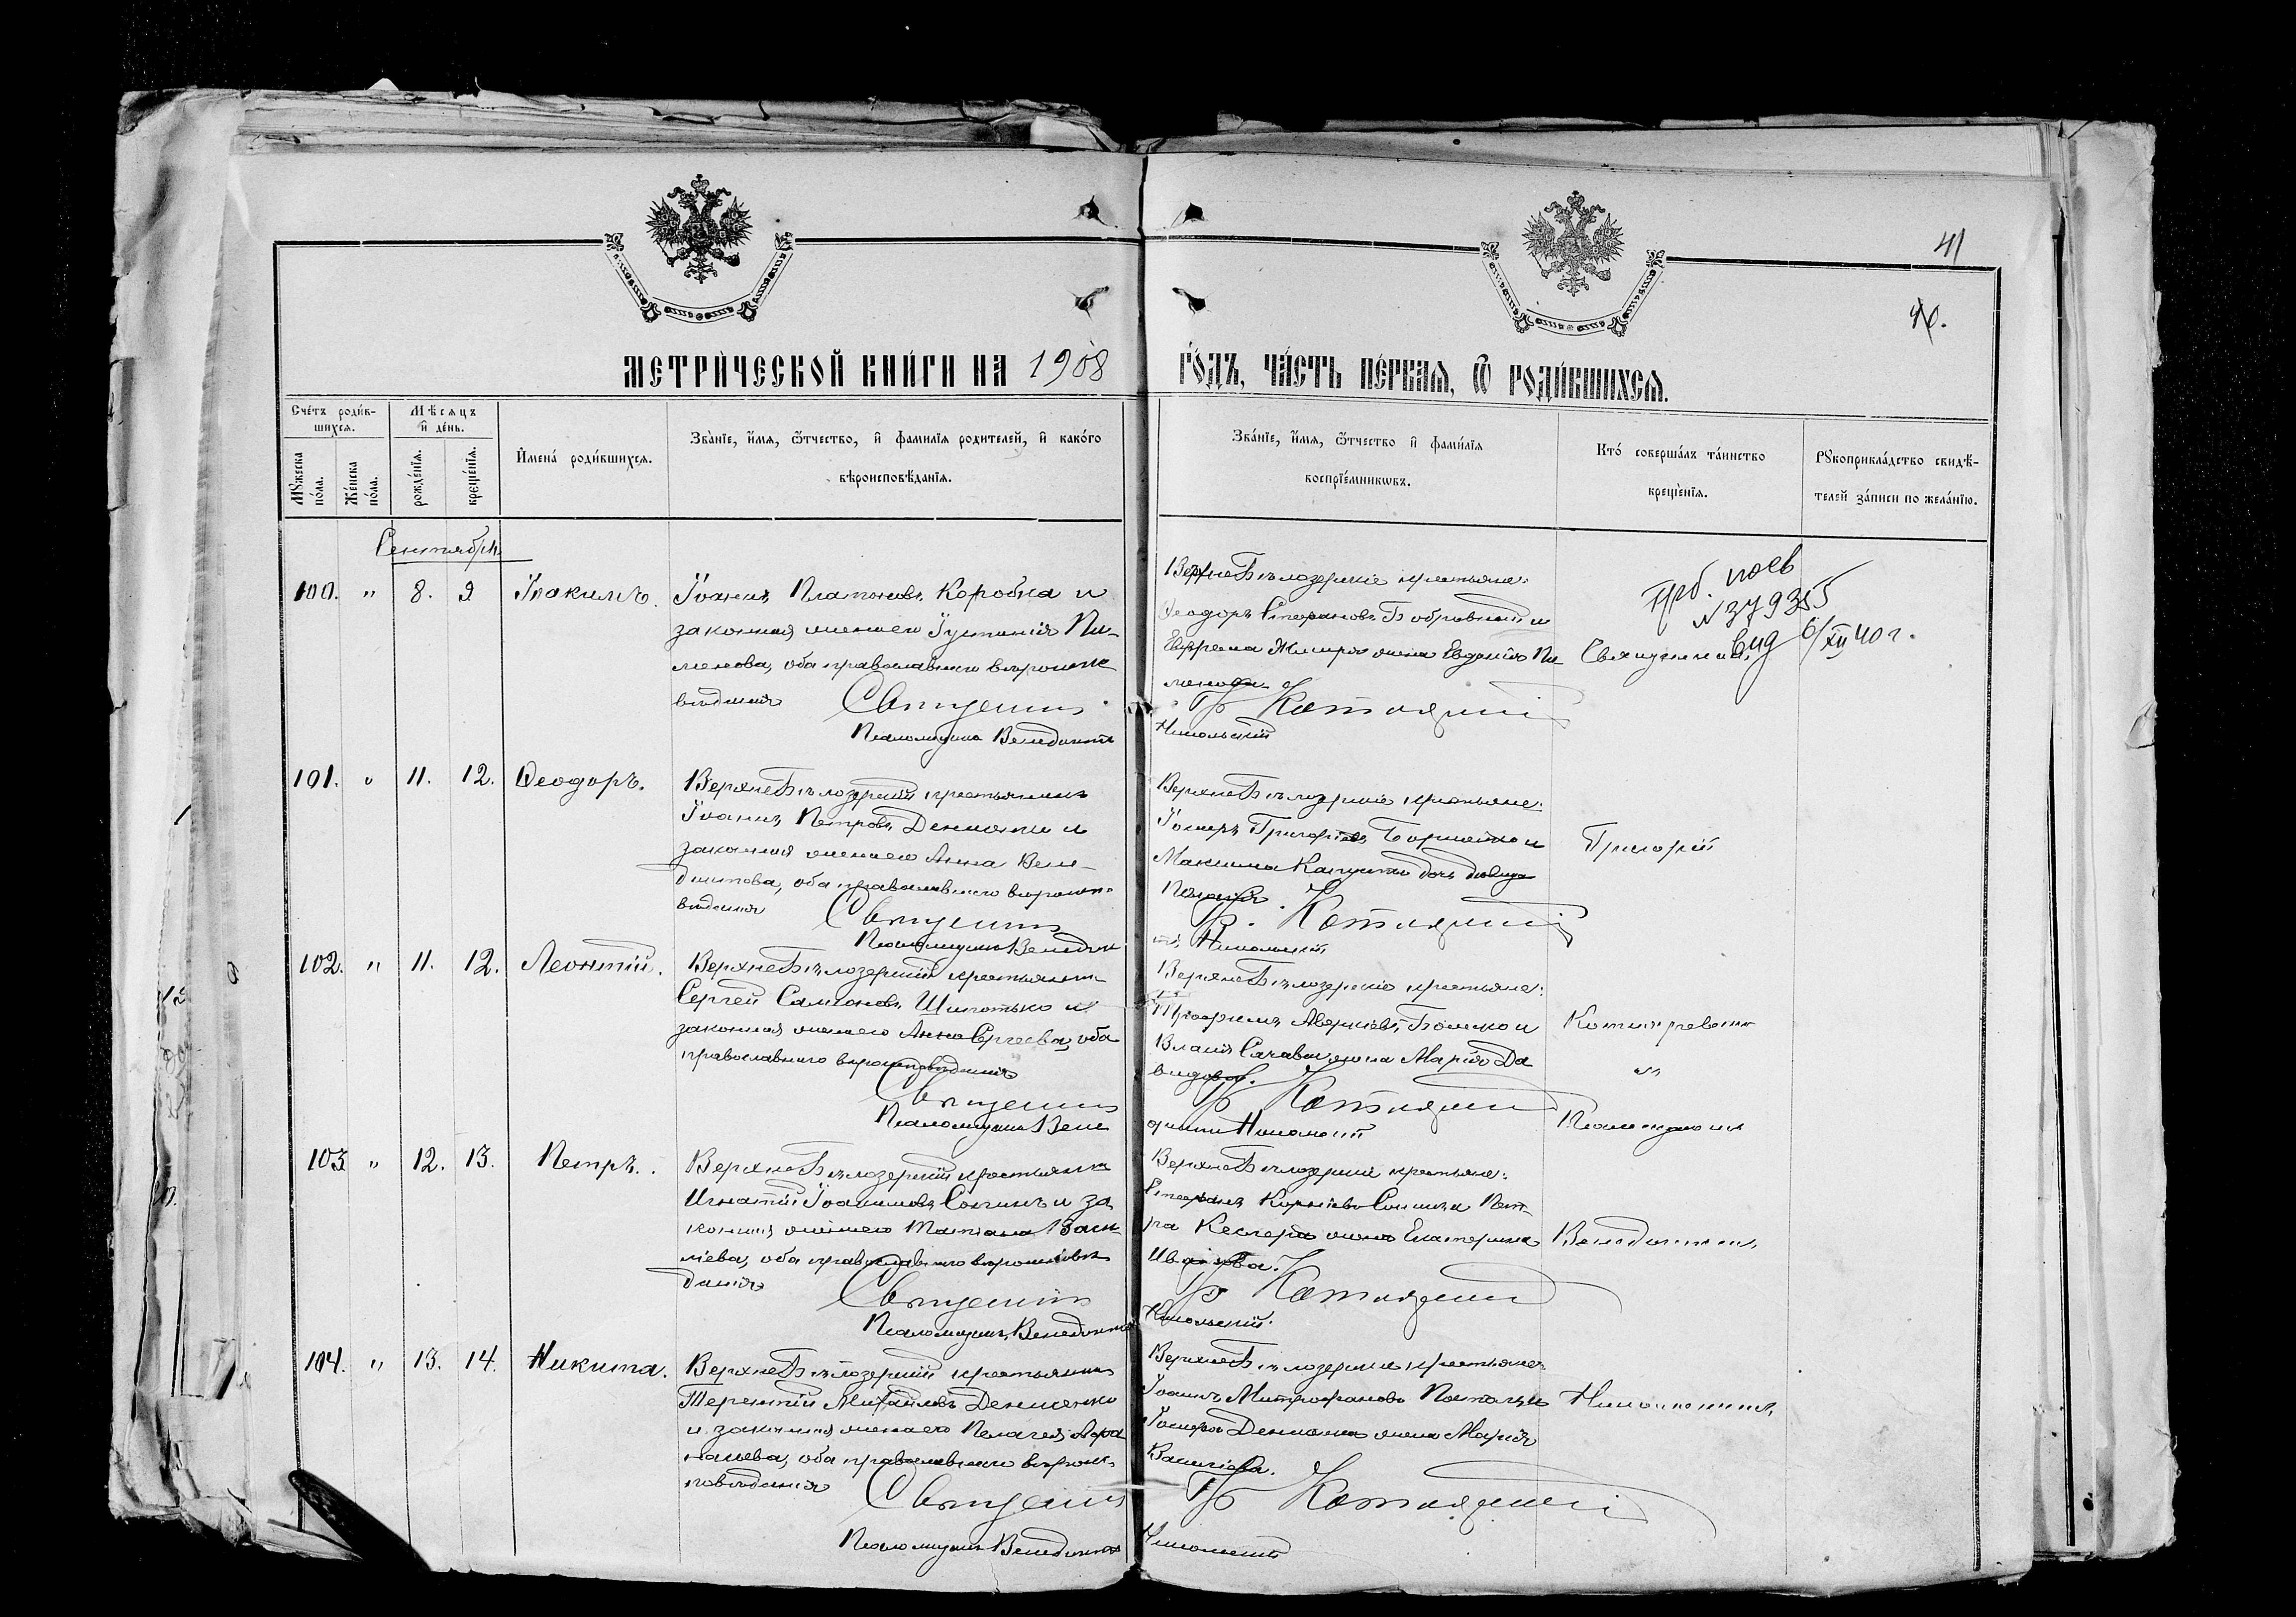 41
40.
МЕТРИ́ЧЕСКОЙ КНИ́ГИ НА 1908 ГО́ДЪ, ЧА́СТЬ ПЕ́РВАѦ, Ѡ҆ РОДИ́ВШИХСѦ.
Счетъ роди́вшихсѧ.
Мѣсѧцъ и҆ де́нь.
Мꙋжеска по́ла.
Же́нска по́ла.
рожде́нїѧ.
креще́нїѧ.
И҆мена̀ роди́вшихсѧ.
Зва́нїе, и҆́мѧ, ѻ҆́тчество, и҆ фамилїѧ родителей, и҆ како́го
вѣроисповѣданїѧ.
Зва́нїе, и҆́мѧ, ѻ҆́тчество и҆ фами́лїѧ
воспрїе́мникѡвъ.
Кто̀ соверша́лъ та́инство
креще́нїѧ.
Рꙋкоприкла́дство свидѣ-
телей за́писи по жела́нїю.
Сентябрь
100. " 8. 9 Іоакимъ.
Іоаннъ Платоновъ Коробка и
законная жена его Іустинія Пи-
менова, оба православнаго вероиспо
веданія
Священникъ
Псаломщикъ Венедиктъ
ВерхнеБѣлозерскіе крестьяне:
Ѳеодоръ Стефановъ Бобровный и
Ефрема жена Евдокія Пи
менова
Гр. Котляревскій
Никольскій
Священникъ
№379355
6/XII 40 г.
101. " 11. 12. Ѳеодоръ.
ВерхнеБѣлозерскій крестьянинъ
Іоаннъ Петровъ Денисенко и
законная жена его Анна Вене-
диктова, оба православнаго вероиспо-
веданія
Священникъ
Псаломщикъ Венедик
ВерхнеБѣлозерскіе крестьяне:
Іосифъ Григорьевъ и
Максима дочь девица
Гр. Котляревскій
тъ Никольскій
Григорій
102. " 11. 12. Леонтій.
ВерхнеБѣлозерскій крестьянинъ
Сергей Самсоновъ и
законная жена его Анна Сергеева, оба
православнаго вероисповеданія
Священникъ
Псаломщикъ Вене
ВерхнеБѣлозерскіе крестьяне:
Трофимъ Аверкіевъ и
жена Марія Да
видова.
Гр. Котляревскій
диктъ Никольскій
Котляревскій
"
Псаломщикъ
103 " 12. 13. Петръ.
ВерхнеБѣлозерскій крестьянинъ
Игнатій Іоакимовъ Сопинъ и за
конная жена его Татіана Васи-
ліева, оба православнаго вероиспове
данія
Священникъ
Псаломщикъ Венедиктъ
ВерхнеБѣлозерскіе крестьяне:
Стефанъ Корнѣевъ и Пет-
ра жена Екатерина
Иванова.
Гр. Котляревскій
Никольскій.
Венедиктъ
104. " 13. 14. Никита.
ВерхнеБѣлозерскій крестьянинъ
Терентій Михайловъ Денисенко
и законная жена его Пелагея Афа
насьева, оба православнаго вероис-
поведанія
Священникъ
Псаломщикъ Венедиктъ
ВерхнеБѣлозерскіе крестьяне
Іоаннъ Митрофановъ и
Іосифа Денисенко жена Марія
Василіева.
Гр. Котляревскій
Никольскій
Никольскій